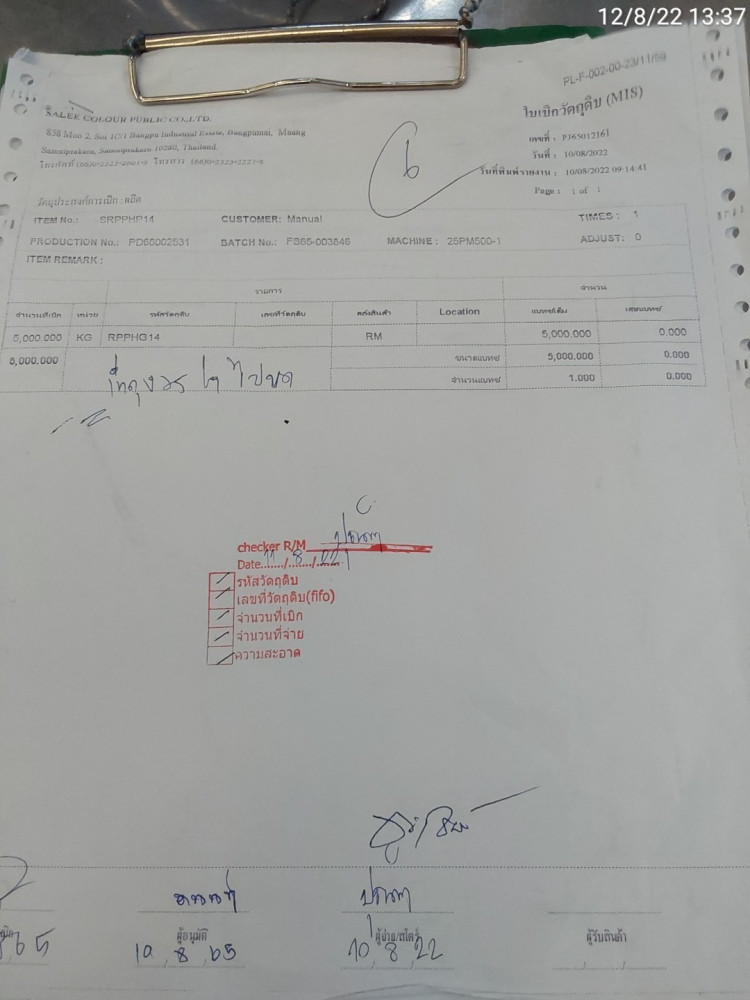 12/8/22 13:37
PL-F-002-00-23/11/59
SALEE COLOUR PUBLIC CO.,LTD.
858 Moo 2, Soi 1C/1 Bangpu Industrial Estate, Bangpumai, Muang
Samutprakarn, Samutprakarn 10280, Thailand.
ใบเบิกวัตถุดิบ (MIS)
เลขที่ : PJ65012161
วันที่ : 10/08/2022
วันที่พิมพ์รายงาน : 10/08/2022 09:14:41
Page : 1 of 1
6
วัตถุประสงค์การเบิก : ผลิต
ITEM No.: SRPPHP14 CUSTOMER: Manual TIMES : 1
PRODUCTION No.: PD65002531 BATCH No.: FS65-003646 MACHINE : 25PM500-1 ADJUST: 0
ITEM REMARK :
รายการ จำนวน
จำนวนที่เบิก หน่วย รหัสวัตถุดิบ เลขที่วัตถุดิบ คลังสินค้า Location แบทช์เต็ม เศษแบทช์
5,000.000 KG RPPHG14 RM 5,000.000 0.000
5,000.000 ขนาดแบทช์ 5,000.000 0.000
จำนวนแบทช์ 1.000 0.000
checker R/M
Date 11/8/22
รหัสวัตถุดิบ
เลขที่วัตถุดิบ(fifo)
จำนวนที่เบิก
จำนวนที่จ่าย
ความสะอาด
ผู้อนุมัติ ผู้จ่าย/สโตร์ ผู้รับสินค้า
65 10 8 65 10 8 22